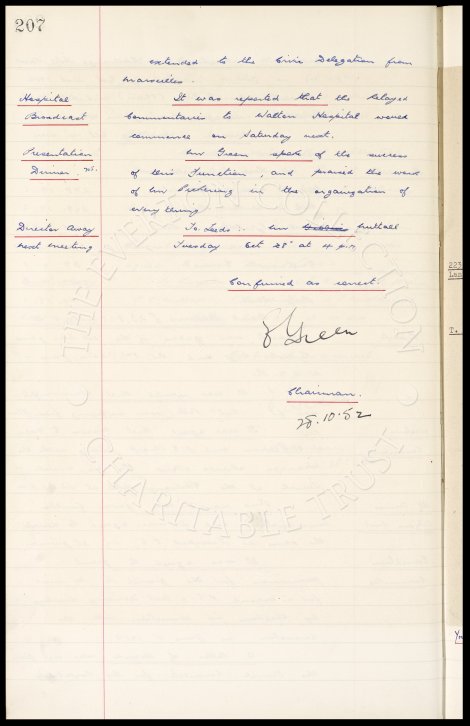 207
extended to the Civic Delegation from
Marseilles.
Hospital It was reported that the relayed
Broadcast Commentaries to Walton Hospital would
commence on Saturday next.
Presentation Mr Green spoke of the success
Dinner of this Function, and praised the work
of Mr Pickering in the organization of
everything
Director Away To Leeds :- Mr Nuttall
next meeting Tuesday Oct 28th at 4 pm
Confirmed as correct.
Green
Chairman.
28.10.52
THE EVERTON COLLECTION
CHARITABLE TRUST
223
T.